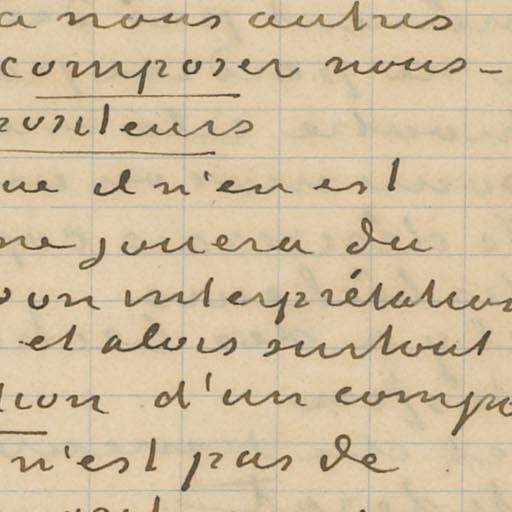 a nous autres
composer nous-
positeurs
que il n'en est
ne jouera du
son interprétation
et alors surtout
tion d'un compo
n'est pas de